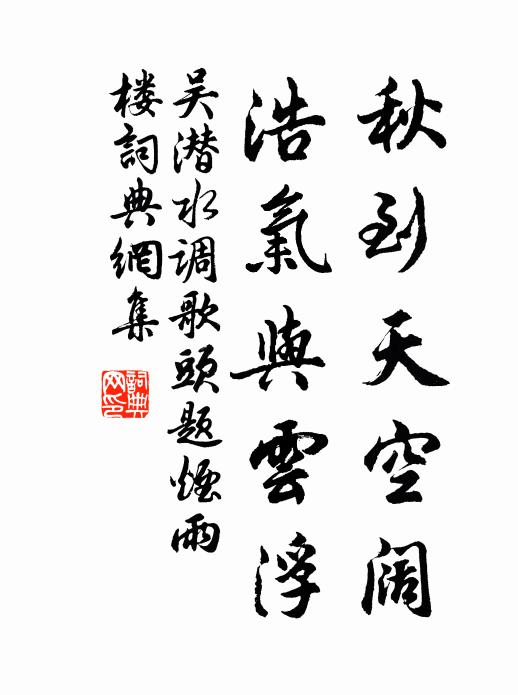 秋到天空阔
浩氣與雲浮
吴潜水调歌頭题煙雨
楼詞典網集
詞典
网印